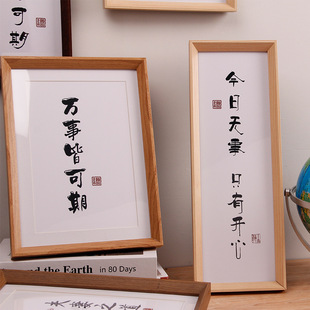 可期
万事皆可期
今日无事 只有开心
nd the Earth in 80 Days